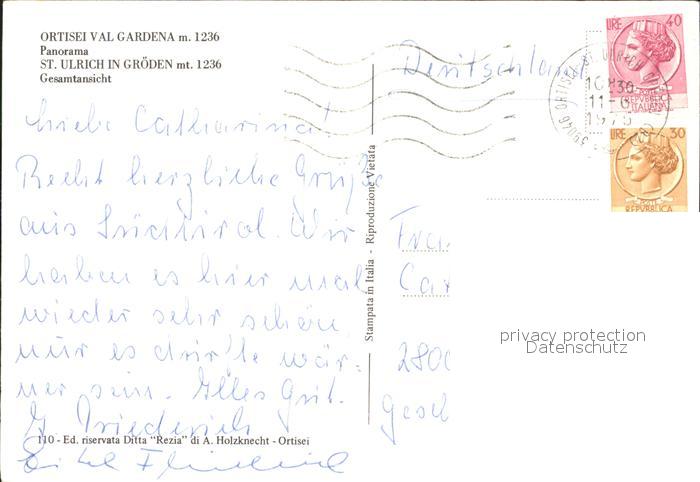 ORTISEI VAL GARDENA m. 1236
Panorama
ST. ULRICH IN GRÖDEN mt. 1236
Gesamtansicht
Deutschland
LIRE 40
REPVBBLICA
ITALIANA
LIRE 30
POSTE
REPVBBLICA
39046 ORTISEI - ST. ULRICH
Liebe Catharina!
Recht herzliche Grüße
aus Südtirol. Wir
haben es hier mal
wieder sehr schön,
nur es dürfte wär-
mer sein. Alles Gute.
Friederich
Stampata in Italia - Riproduzione Vietata
Frau
Cat
2800
privacy protection
Datenschutz
110 - Ed. riservata Ditta "Rezia" di A. Holzknecht - Ortisei